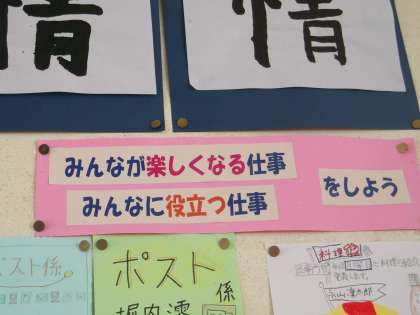 情
情
みんなが楽しくなる仕事
みんなに役立つ仕事
をしよう
ポスト係
ポスト係
堀内澪
料理